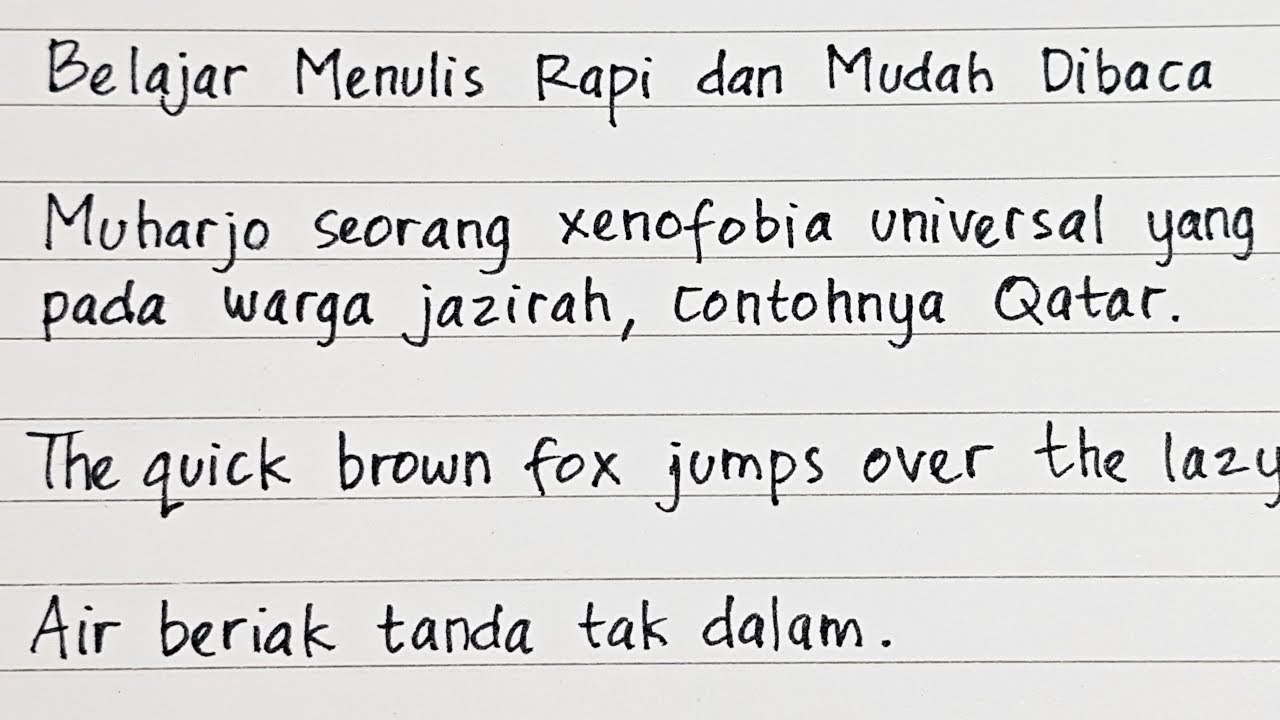 Belajar Menulis Rapi dan Mudah Dibaca
Muharjo seorang xenofobia universal yang
pada warga jazirah, contohnya Qatar.
The quick brown fox jumps over the lazy
Air beriak tanda tak dalam.